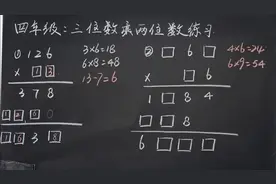 四年级:三位数乘两位数练习
① 126
× 1 3
378
1 2 6
1 6 3 8
3×6=18
6×8=48
13-7=6
② □ □ 6
× □ □
1 □ 8 4
□ □ 8
6 □ □ □
4×6=24
6×9=54